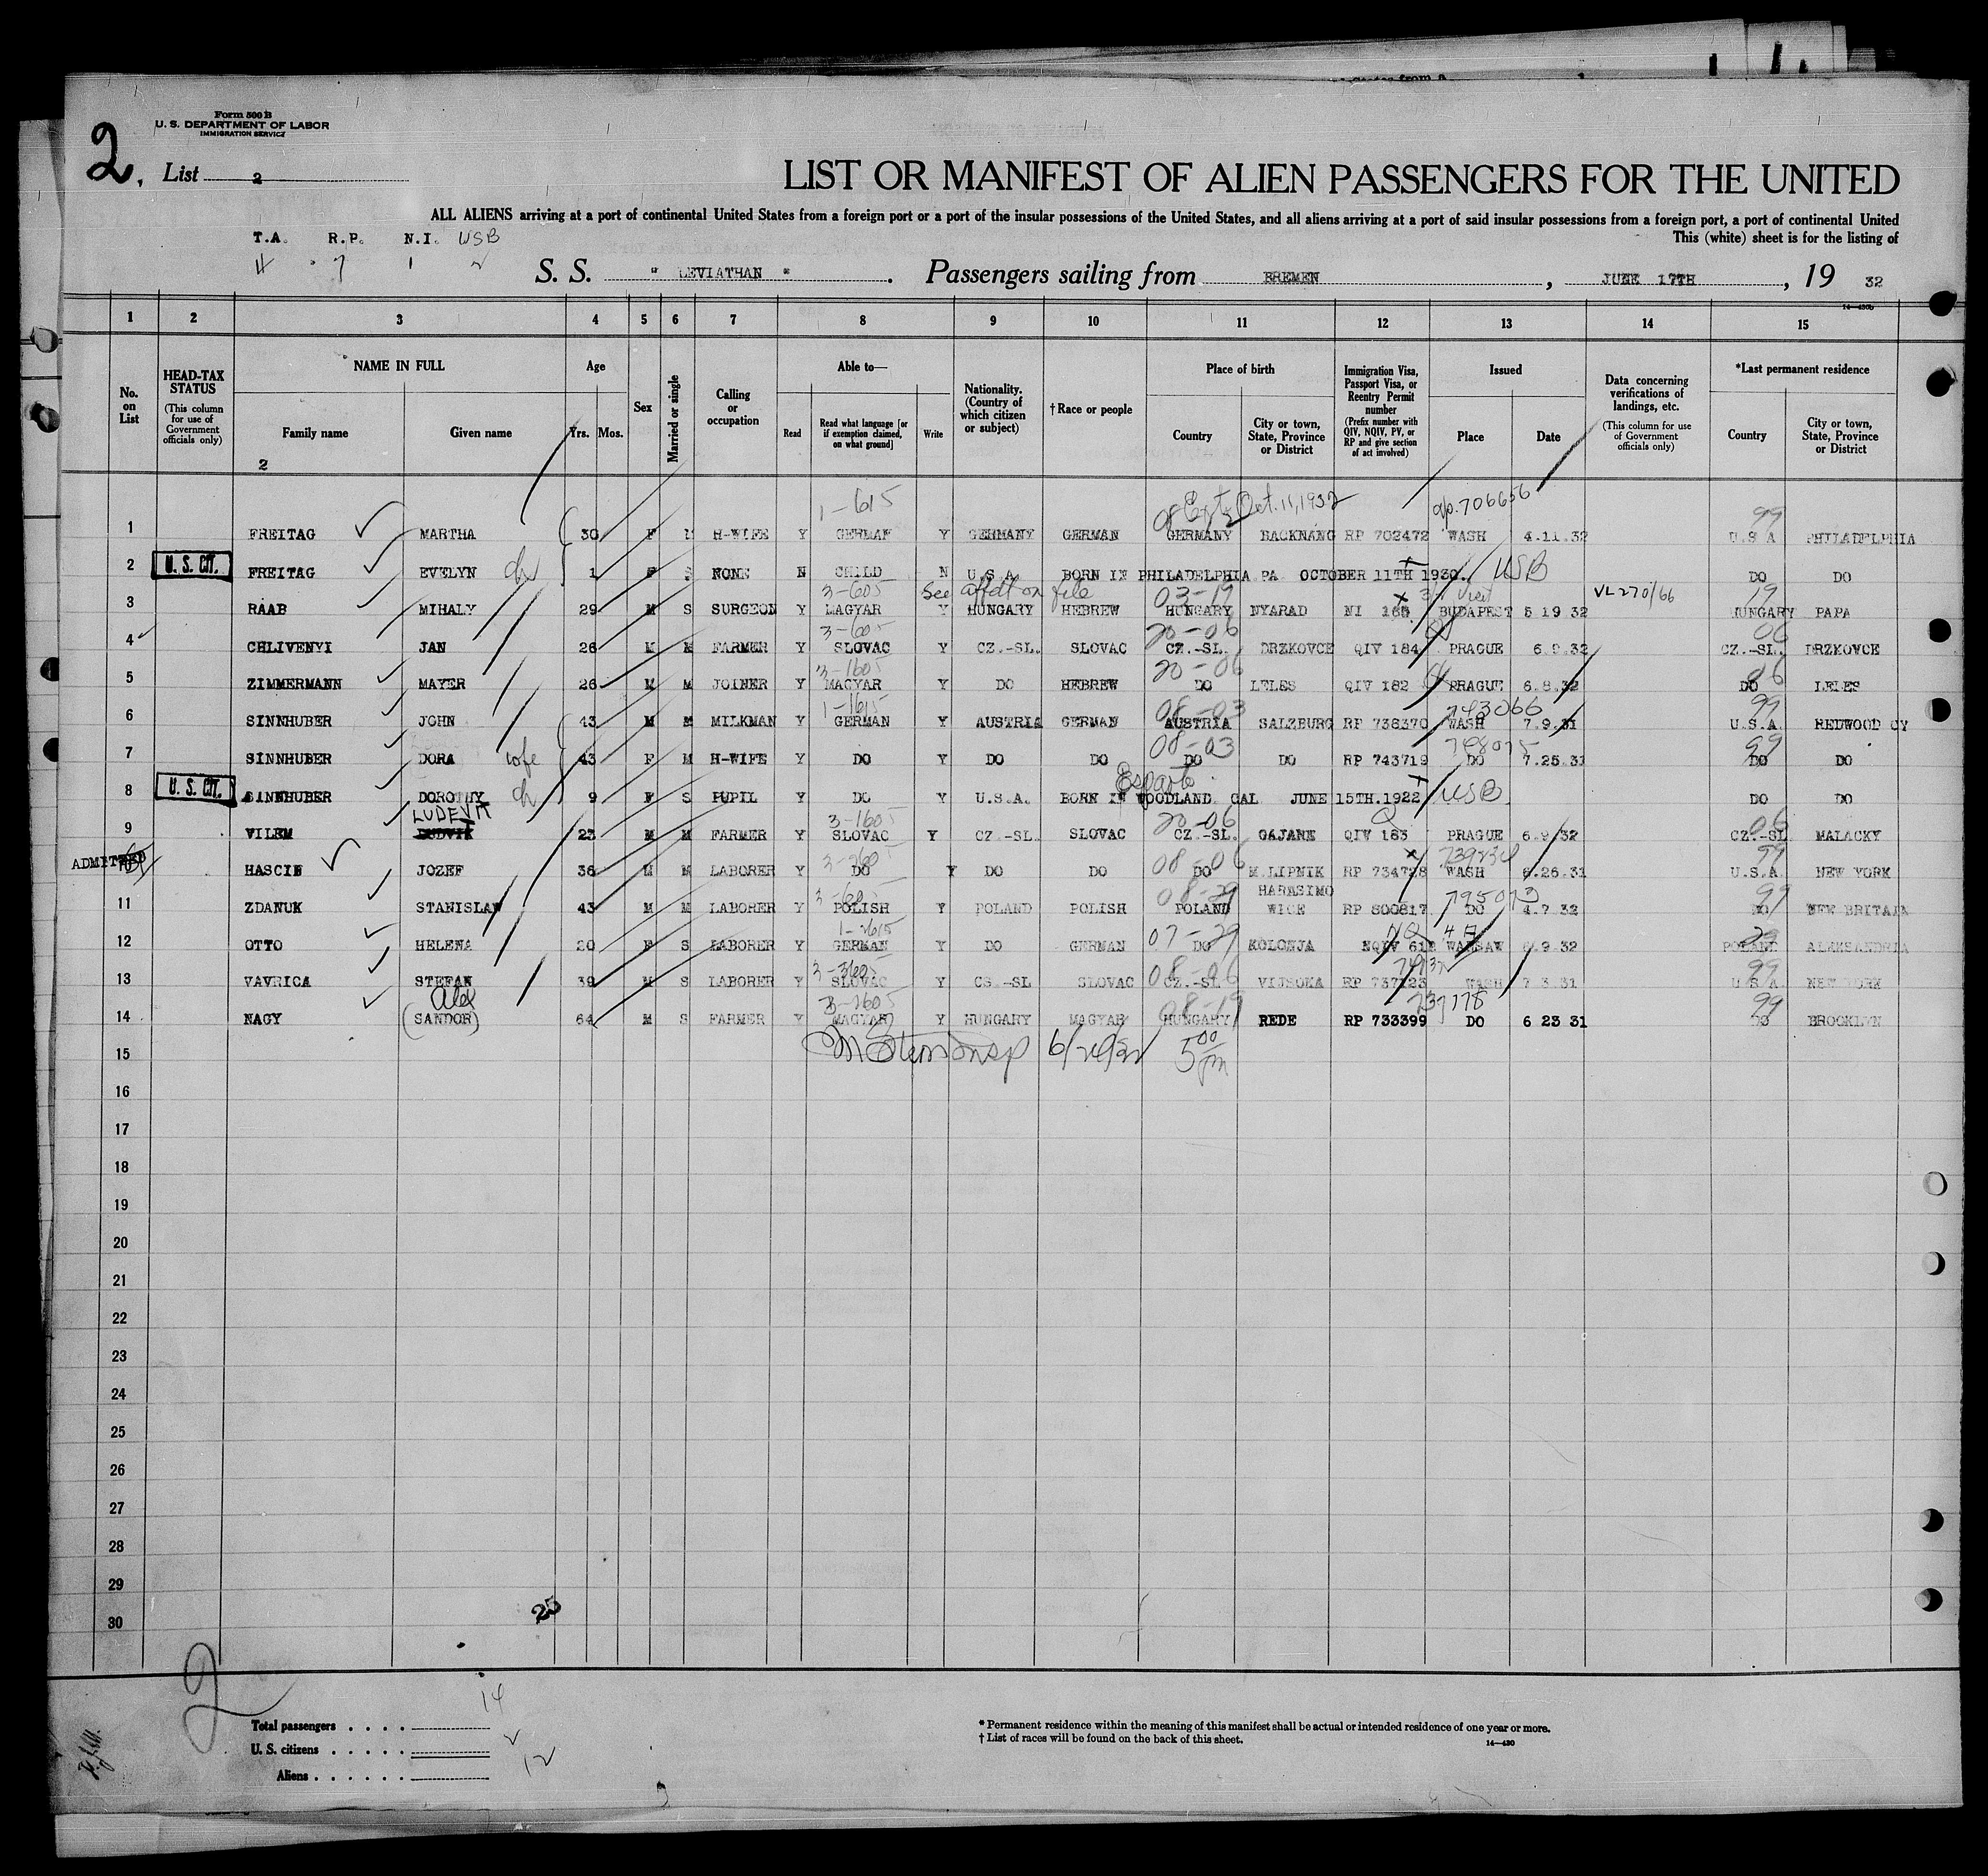 Form 500 B
U. S. DEPARTMENT OF LABOR
IMMIGRATION SERVICE
2.
List 2
LIST OR MANIFEST OF ALIEN PASSENGERS FOR THE UNITED
ALL ALIENS arriving at a port of continental United States from a foreign port or a port of the insular possessions of the United States, and all aliens arriving at a port of said insular possessions from a foreign port, a port of continental United
This (white) sheet is for the listing of
T.A. R.P. N.I. USB
7 1 2
S. S. " LEVIATHAN " . Passengers sailing from BREMEN , JUNE 17TH , 19 32
14—430b
1 2 3 4 5 6 7 8 9 10 11 12 13 14 15
No. on List
HEAD-TAX STATUS (This column for use of Government officials only)
NAME IN FULL
Family name
Given name
2
Age
Yrs. Mos.
Sex
Married or single
Calling or occupation
Able to—
Read
Read what language [or if exemption claimed, on what ground]
Write
Nationality. (Country of which citizen or subject)
† Race or people
Place of birth
Country
City or town, State, Province or District
Immigration Visa, Passport Visa, or Reentry Permit number (Prefix number with QIV, NQIV, PV, or RP and give section of act involved)
Issued
Place
Date
Data concerning verifications of landings, etc. (This column for use of Government officials only)
*Last permanent residence
Country
City or town, State, Province or District
1-615 08 Ext. Oct. 11, 1932 706656 99
1 FREITAG MARTHA 30 F M H-WIFE Y GERMAN Y GERMANY GERMAN GERMANY BACKNANG RP 702472 WASH 4.11.32 U.S.A PHILADELPHIA
2 U. S. CIT. FREITAG EVELYN ch 1 F S NONE N CHILD N U.S.A. BORN IN PHILADELPHIA PA OCTOBER 11TH 1930. USB DO DO
3-605 See affdt on file 03-19 Visit VL 270/66 19
3 RAAB MIHALY 29 M S SURGEON Y MAGYAR Y HUNGARY HEBREW HUNGARY NYARAD NI 165 BUDAPEST 5 19 32 HUNGARY PAPA
3-605 20-06 06
4 CHLIVENYI JAN 26 M M FARMER Y SLOVAC Y CZ.-SL. SLOVAC CZ.-SL. DRZKOVCE QIV 184 PRAGUE 6.9.32 CZ.-SL. DRZKOVCE
3-1605 20-06 06
5 ZIMMERMANN MAYER 26 M M JOINER Y MAGYAR Y DO HEBREW DO LELES QIV 182 PRAGUE 6.8.32 DO LELES
1-1615 08-03 743066 99
6 SINNHUBER JOHN 43 M M MILKMAN Y GERMAN Y AUSTRIA GERMAN AUSTRIA SALZBURG RP 738370 WASH 7.9.31 U.S.A. REDWOOD CY
08-03 748075 99
7 SINNHUBER DORA wife 43 F M H-WIFE Y DO Y DO DO DO DO RP 743719 DO 7.25.31 DO DO
Esparto
8 U. S. CIT. SINNHUBER DOROTHY ch 9 F S PUPIL Y DO Y U.S.A. BORN IN WOODLAND CAL JUNE 15TH.1922 USB DO DO
LUDEVIT 3-1605 20-06 Q 06
9 VILEM LUDVIK 23 M M FARMER Y SLOVAC Y CZ.-SL. SLOVAC CZ.-SL. GAJANE QIV 183 PRAGUE 6.9.32 CZ.-SL MALACKY
3-260 08-06 739234 99
ADMITTED 10 HASCIN JOZEF 36 M M LABORER Y DO Y DO DO DO M.LIPNIK RP 734728 WASH 6.26.31 U.S.A. NEW YORK
08-29 HARASIMO 795073 99
11 ZDANUK STANISLAW 43 M M LABORER Y POLISH Y POLAND POLISH POLAND WICE RP 800817 DO 4.7.32 DO NEW BRITAIN
1-2615 07-29 NQ 4 A 29
12 OTTO HELENA 20 F S LABORER Y GERMAN Y DO GERMAN DO KOLONJA NQIV 612 WARSAW 6.9.32 POLAND ALEKSANDRIA
3-3605 08-06 99
13 VAVRICA STEFAN 39 M S LABORER Y SLOVAC Y CS.-SL SLOVAC CZ.-SL VIJSOKA RP 737123 WASH 7 3.31 U.S.A NEW YORK
Alex 3-2605 08-19 737178 99
14 NAGY (SANDOR) 64 M S FARMER Y MAGYAR Y HUNGARY MAGYAR HUNGARY REDE RP 733399 DO 6 23 31 DO BROOKLYN
15 Insp 5 00 pm
16
17
18
19
20
21
22
23
24
25
26
27
28
29
30
25
Total passengers . . . . 14
U. S. citizens . . . . . 2
Aliens . . . . . . 12
* Permanent residence within the meaning of this manifest shall be actual or intended residence of one year or more.
† List of races will be found on the back of this sheet.
14—430